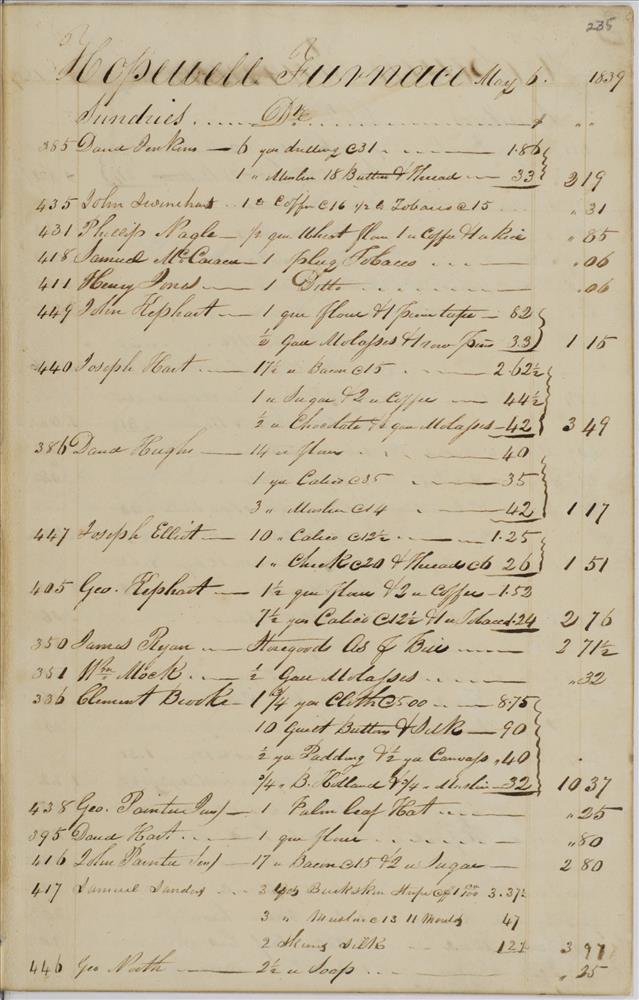 235
Hopewell Furnace May 6. 1839
Sundries ...... Dr ...... $ " "
385 David Jenkins — 6 yds drilling @31 — 1.86
1 " Muslin 18 Button & Thread — 33 2 19
435 John Swinehart .. 1 lb Coffee @16 1/2 lb Tobacco @15 " 31
431 Phillip Nagle — 1/2 qr Wheat flour 1 " Coffee & 1 " Rice " 85
418 Samuel McCaraen — 1 plug Tobacco " 06
411 Henry Jones — 1 Ditto " 06
449 John Kephart — 1 qr flour & 1 piece tape — 82
1/2 Gall Molasses & 1 row Pins 33 1 15
440 Joseph Hart — 17 1/2 " Bacon @15 — 2.62 1/2
1 " Sugar & 2 " Coffee — 44 1/2
1/2 " Chocolate & qr Molasses — 42 3 49
386 David Hughs — 14 " flour — 40
1 yd Calico @35 — 35
3 " Muslin @14 — 42 1 17
447 Joseph Elliot — 10 " Calico @12 1/2 — 1.25
1 " Check @20 & Thread @6 26 1 51
405 Geo. Kephart — 1 1/2 qr flour & 2 " Coffee — 1.52
7 1/2 yds Calico @12 1/2 & 1 " Tobacco 1.24 2 76
350 James Ryan — Storegoods As Bill — 2 71 1/2
351 Wm Mock — 1/2 Gall Molasses " 32
336 Clement Brooke — 1 3/4 yds Cloth @500 — 8.75
10 Button & Silk — 90
1/2 yd Padding & 1/2 yd Canvass " 40
3/4 " B. Holland & 3/4 " Muslin — 32 10 37
438 Geo. Painter Junr — 1 Palm leaf Hat " 25
395 David Hart — 1 qr flour " 80
416 John Painter Senr — 17 " Bacon @15 & 2 " Sugar — 2 80
417 Samuel Sands 3 Buckskin @ 1 3.37 1/2
3 " Muslin @13 11 Moulds 47
2 Skeins Silk 12 1/2 3 97
446 Geo North — 2 1/2 " Soap " 25